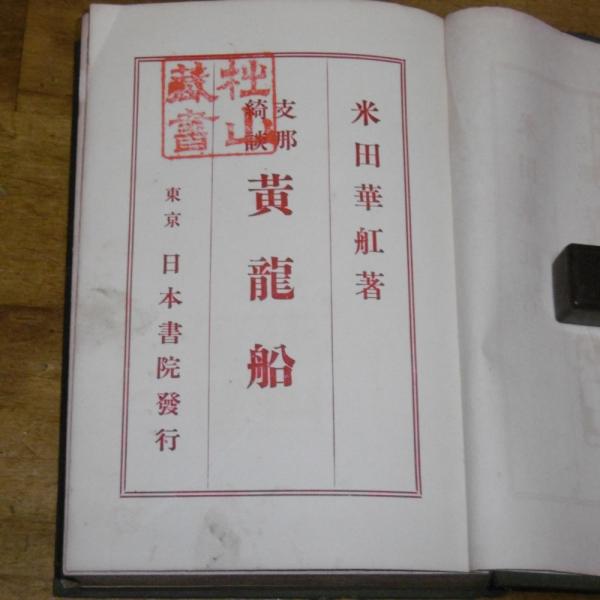 米田華舡著
支那
綺談
黃龍船
東京 日本書院發行
杜山
藏書